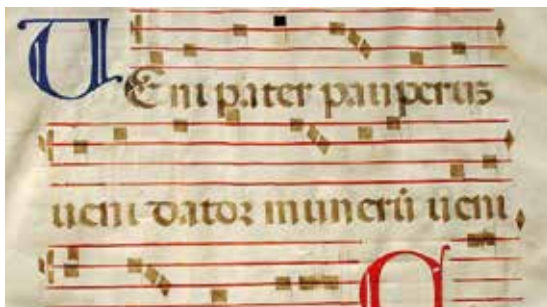 VEni pater pauperus
ueni dator munerū ueni